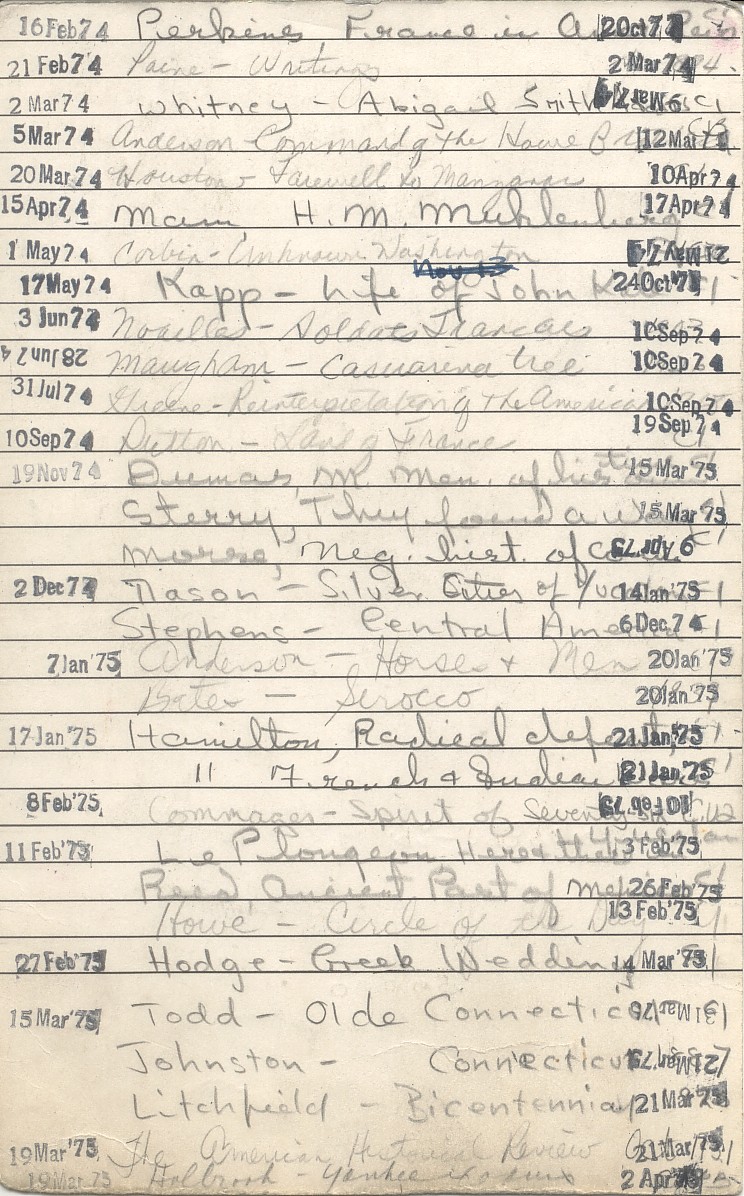 16 Feb 74 Perkins France in 2 Oct 7
21 Feb 74 Paine - Writings 2 Mar 74
2 Mar 74 Whitney - Abigail Smith 9 Mar 74
5 Mar 74 Anderson - Command of the Howe 12 Mar 74
20 Mar 74 Houston - Farewell to Manzanar 10 Apr 74
15 Apr 74 Mann, H. M. Muhlenberg 17 Apr 74
1 May 74 Corbin - Unknown Washington 21 May 74
Nov 13
17 May 74 Kapp - Life of John 24 Oct 7
3 Jun 74 Noailles - Soldats Francais 10 Sep 74
28 Jun 74 Maugham - Casuarina tree 10 Sep 74
31 Jul 74 Greene - Reinterpretation of the American 10 Sep 74
10 Sep 74 Dutton - Land of France 19 Sep 74
19 Nov 74 Dumas, M. Mem. of his 15 Mar '75
Sterry, They found a way 15 Mar '75
Morse, Neg. hist. of 9 Apr '75
2 Dec 74 Nason - Silver Cities of 14 Jan '75
Stephens - Central America 6 Dec 74
7 Jan '75 Anderson - Horses & Men 20 Jan '75
Bates - Sirocco 20 Jan '75
17 Jan '75 Hamilton, Radical 21 Jan '75
" French & Indian 21 Jan '75
8 Feb '75 Commager - Spirit of Seventy Six 10 Feb '75
11 Feb '75 Le Plongeon Here & there 13 Feb '75
Reed Ancient Past of 26 Feb '75
Howe - Circle of the Day 13 Feb '75
27 Feb '75 Hodge - Greek Wedding 14 Mar '75
15 Mar '75 Todd - Olde Connecticut 31 Mar '75
Johnston - Connecticut 21 Mar '75
Litchfield - Bicentennial 21 Mar '75
19 Mar '75 The American Historical Review 21 Mar '75
19 Mar '75 Holbrook - Yankee 2 Apr